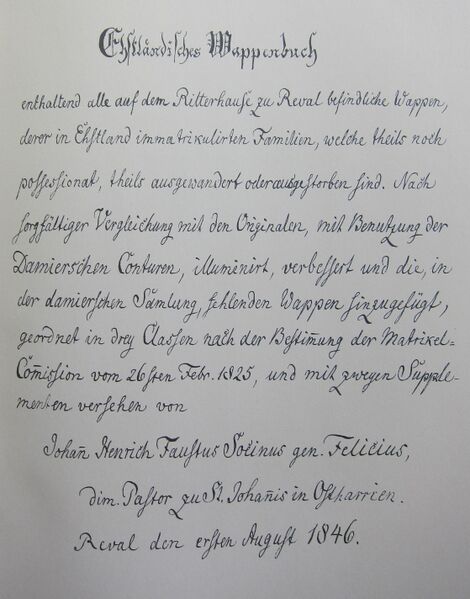 Ehstländisches Wappenbuch
enthaltend alle auf dem Ritterhause zu Reval befindliche Wappen,
derer in Ehstland immatrikulirten Familien, welche theils noch
possessionat, theils ausgewandert oder ausgestorben sind. Nach
sorgfältiger Vergleichung mit den Originalen, mit Benutzung der
Damierschen Conturen, illuminirt, verbessert und die, in
der damierschen Sam̄lung, fehlenden Wappen hinzugefügt,
geordnet in drey Classen nach der Bestim̄ung der Matrikel-
Com̄ission vom 26sten Febr. 1825, und mit zweyen Supple-
menten versehen von
Johan̄ Henrich Faustus Solinus gen. Felicius,
dim. Pastor zu St. Johan̄is in Ostharrien.
Reval den ersten August 1846.